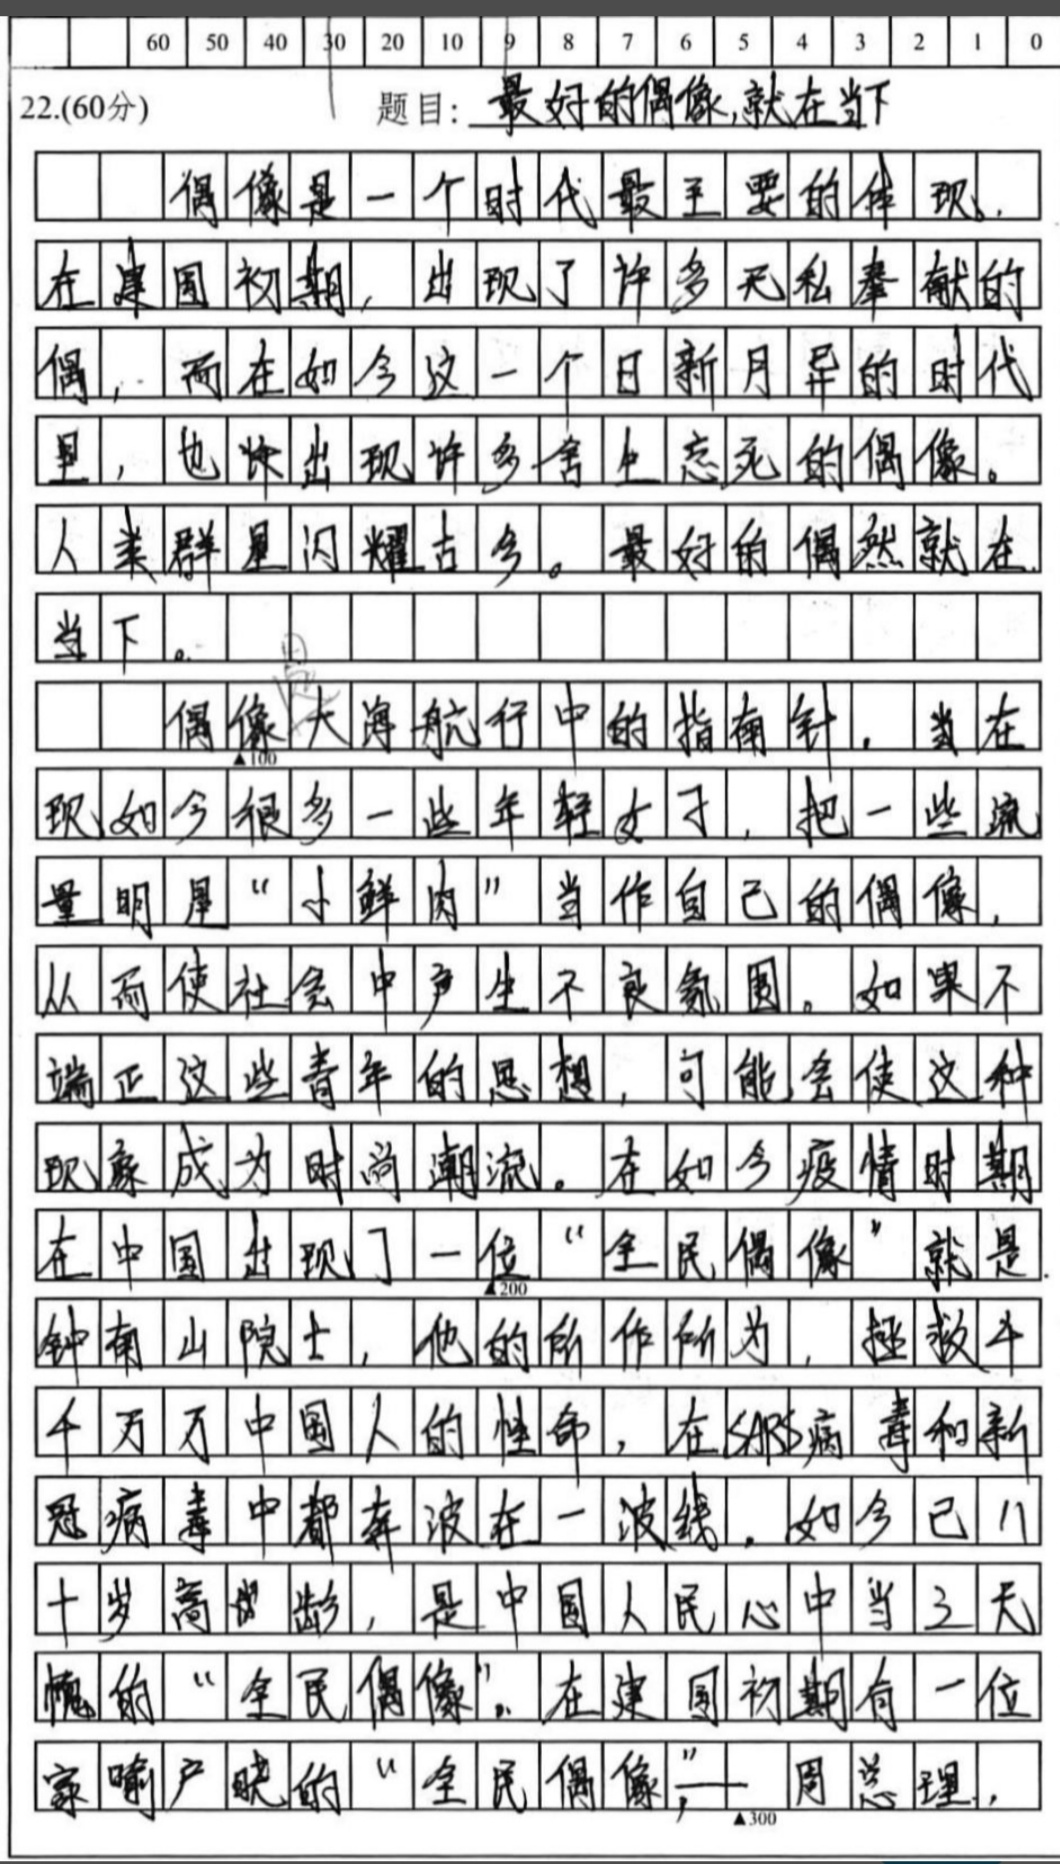 60 50 40 30 20 10 9 8 7 6 5 4 3 2 1 0
22.(60分) 题目: 最好的偶像,就在当下
偶像是一个时代最主要的体现。
在建国初期,出现了许多无私奉献的
偶,而在如今这一个日新月异的时代
里,也常出现许多舍生忘死的偶像。
人类群星闪耀古今。最好的偶然就在
当下。
是
偶像大海航行中的指南针.当在
▲100
现如今很多一些年轻女子,把一些流
量明星“小鲜肉”当作自己的偶像,
从而使社会中产生不良氛围。如果不
端正这些青年的思想,可能会使这种
现象成为时尚潮流。在如今疫情时期
在中国出现了一位“全民偶像”就是
▲200
钟南山院士,他的所作所为,拯救千
千万万中国人的性命,在SARS病毒和新
冠病毒中都奔波在一波线.如今已八
十岁高龄,是中国人民心中当之无
愧的“全民偶像”。在建国初期有一位
家喻户晓的“全民偶像”,——周总理,
▲300